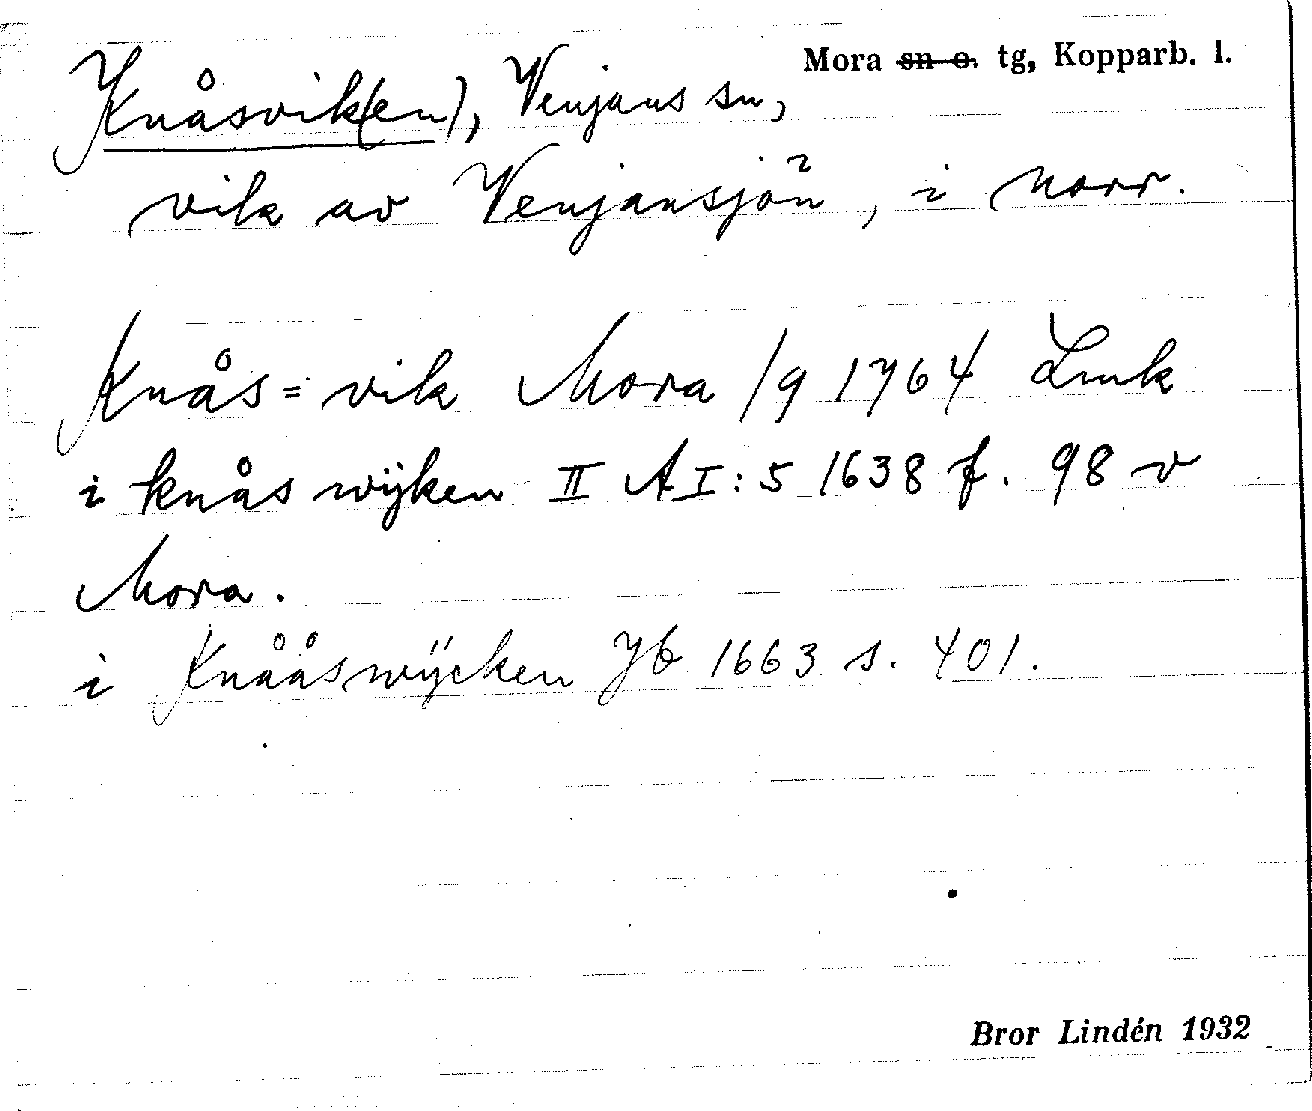 Mora sn o. tg, Kopparb. l.
Knåsvik(en), Venjans sn,
vik av Venjansjön, i norr.
Knås=vik Mora /9 1764 Lmk
i knåswijken II A I:5 1638 f. 98 v
Mora.
i Knååswÿcken Jb 1663 s. 401.
Bror Lindén 1932